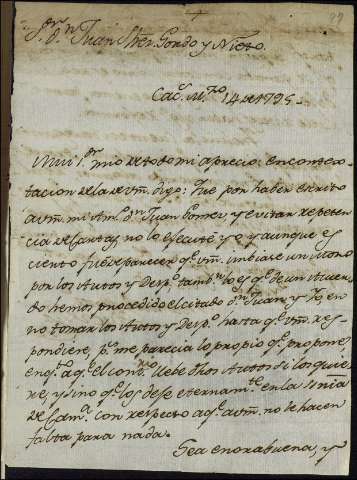 S.or D.n Juan Gordo y Nieto.
Cac.s M.zo 14 de 1795.
Mui S.or mio de todo mi aprecio: En contex-
tacion de la de vm. digo: Que por haber escrito
a vm. mi Am.o D.n Juan Gomez, y evitar repeten-
cia de Cartas, no lo egecuté yo, y aunque es
cierto fue de parecer q.e vm. imbiase un Mozo
por los Autos y Desp.o tamb.n lo es q.e de un Acuer-
do hemos procedido el citado D.n Juan y Yo, en
no tomar los Autos y Desp.o hasta q.e vm. res-
pondiere, p.s me parecia lo propio q.e propone
en q.to a q.e el lleve dhos Autos si los quie-
re, y sino q.e los dexe eternam.te en la
de Cam.a con respecto a q.e a vm. no le hacen
falta para nada.
Sea enorabuena, y